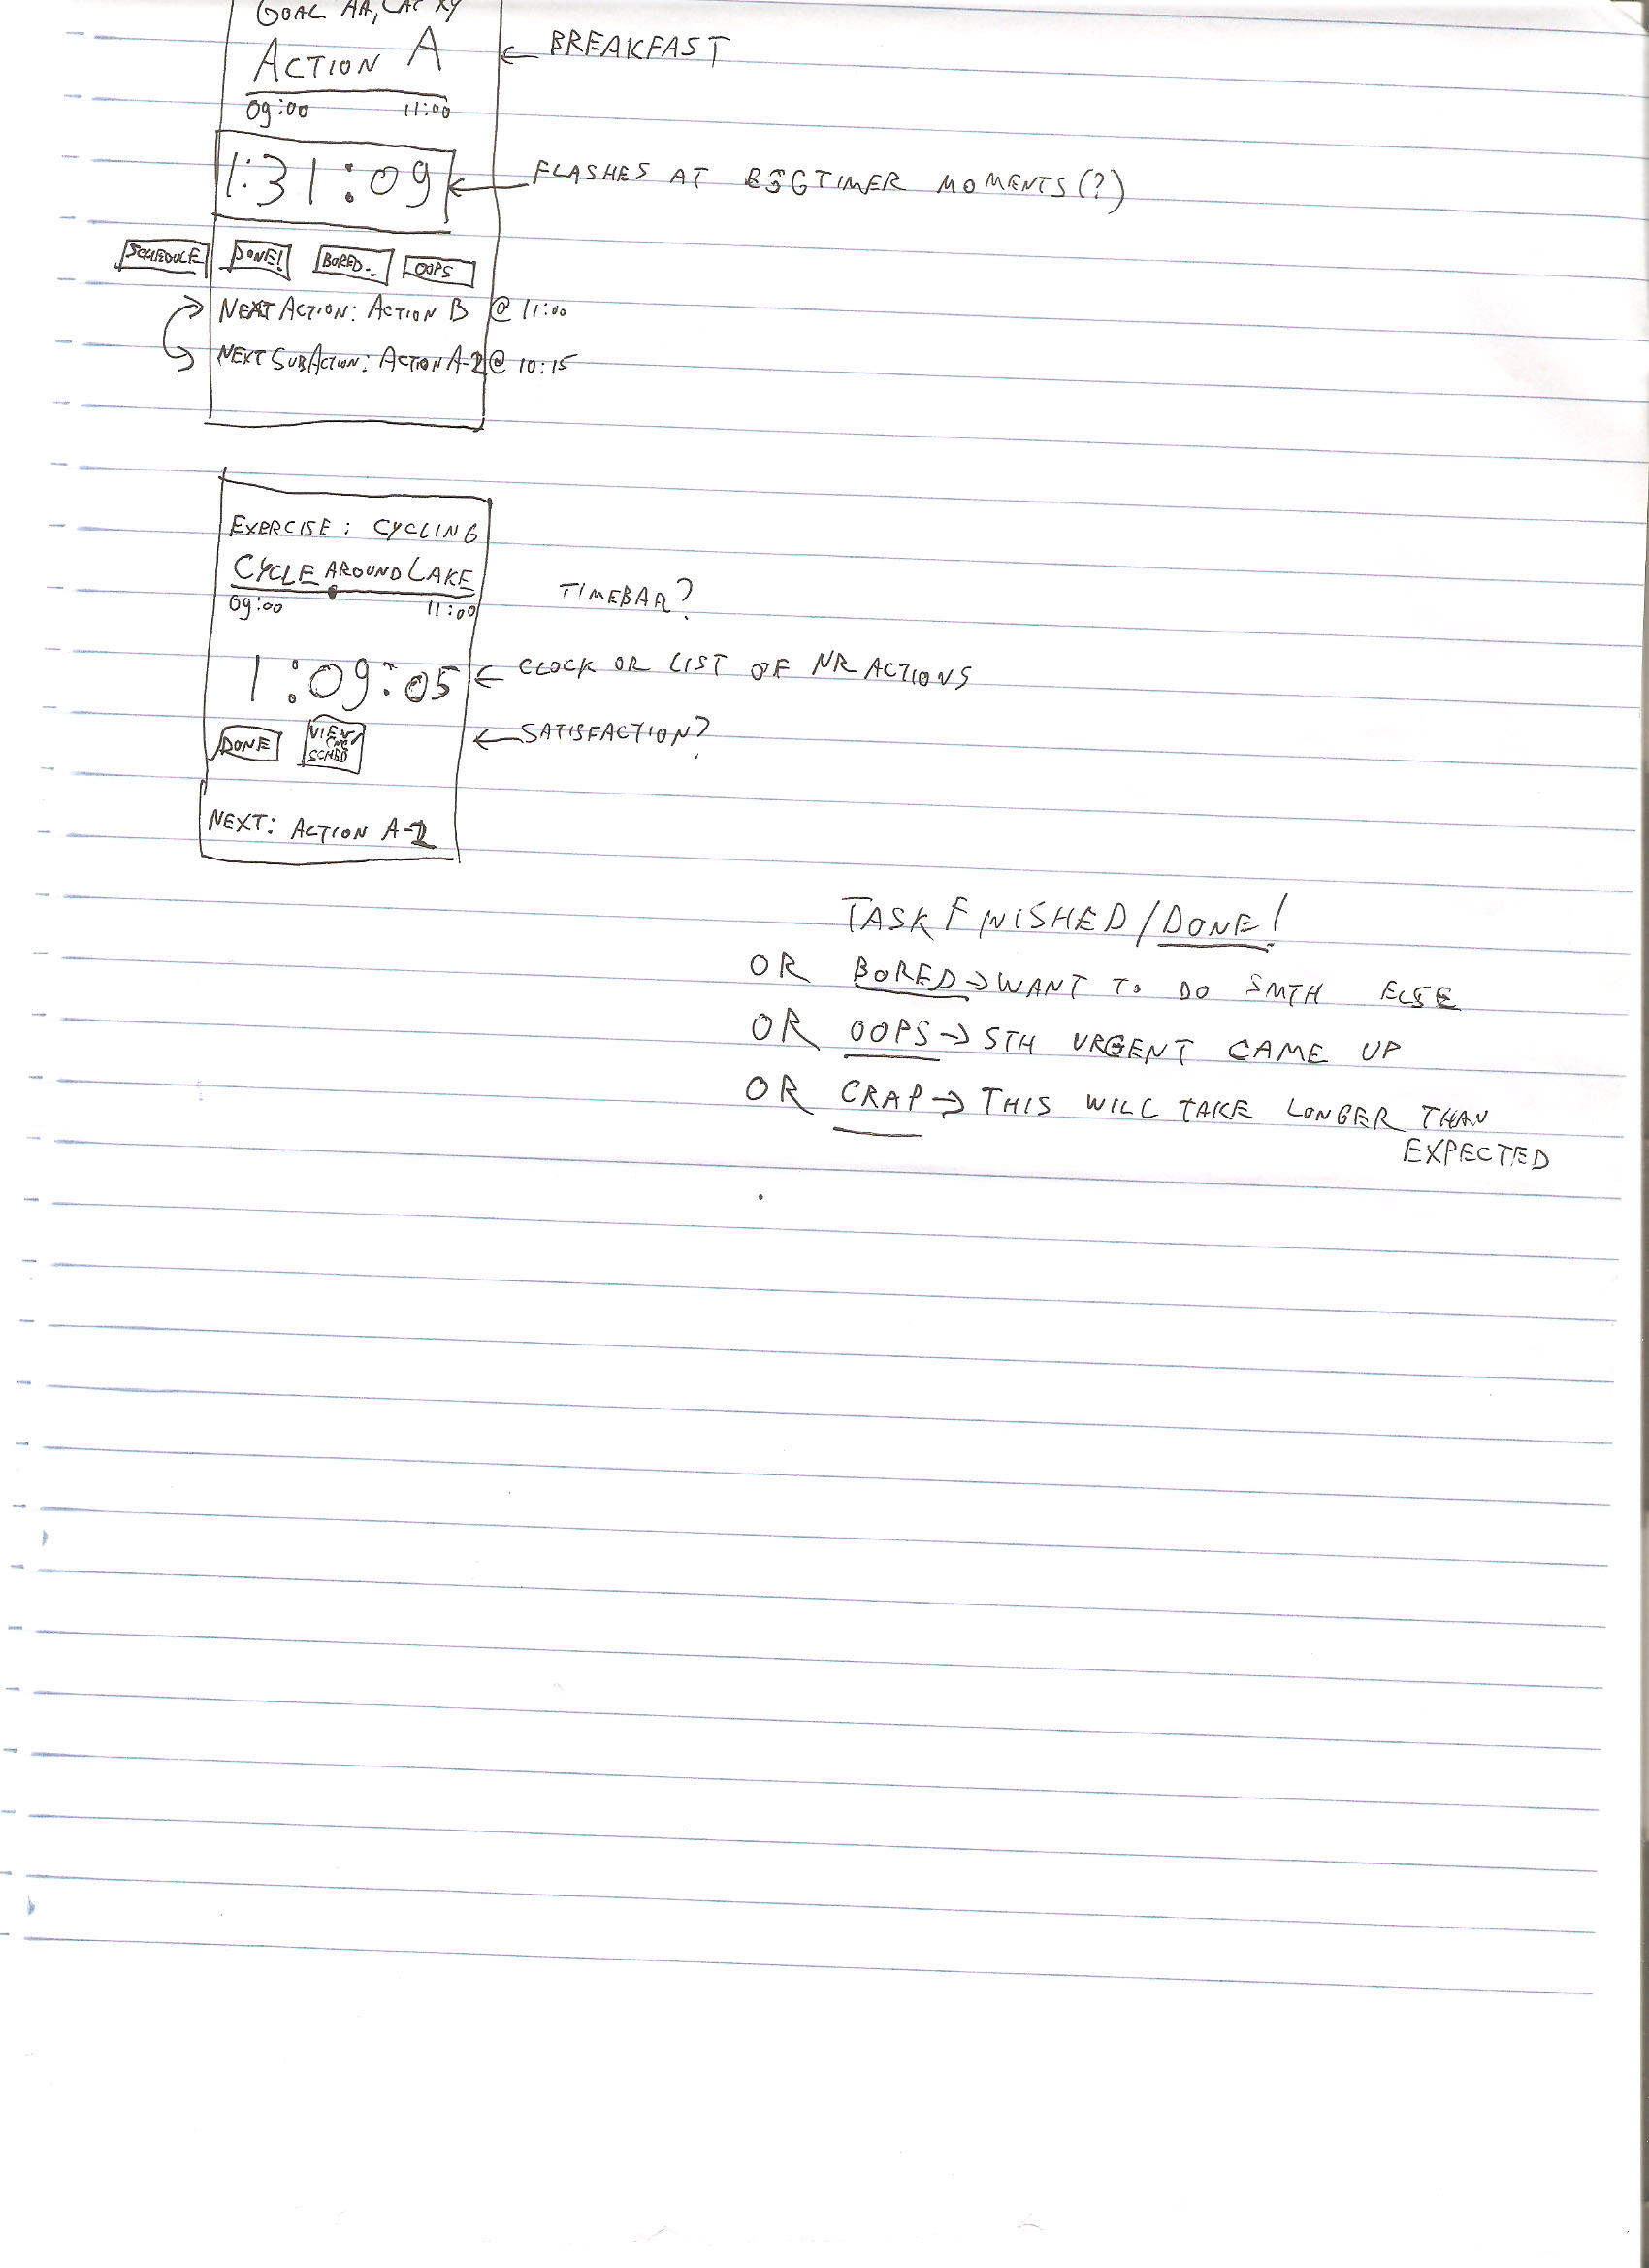 GOAL AA, CAT XY
ACTION A
← BREAKFAST
09:00 11:00
1:31:09
← FLASHES AT BSGTIMER MOMENTS(?)
SCHEDULE DONE! BORED.. OOPS
NEXT ACTION: ACTION B @ 11:00
NEXT SUBACTION: ACTION A-2 @ 10:15
EXERCISE: CYCLING
CYCLE AROUND LAKE
TIMEBAR?
09:00 11:00
1:09:05
← CLOCK OR LIST OF NR ACTIONS
DONE
VIEW
SCHED
← SATISFACTION?
NEXT: ACTION A-2
TASK FINISHED/DONE!
OR BORED → WANT TO DO SMTH ELSE
OR OOPS → STH URGENT CAME UP
OR CRAP → THIS WILL TAKE LONGER THAN
EXPECTED